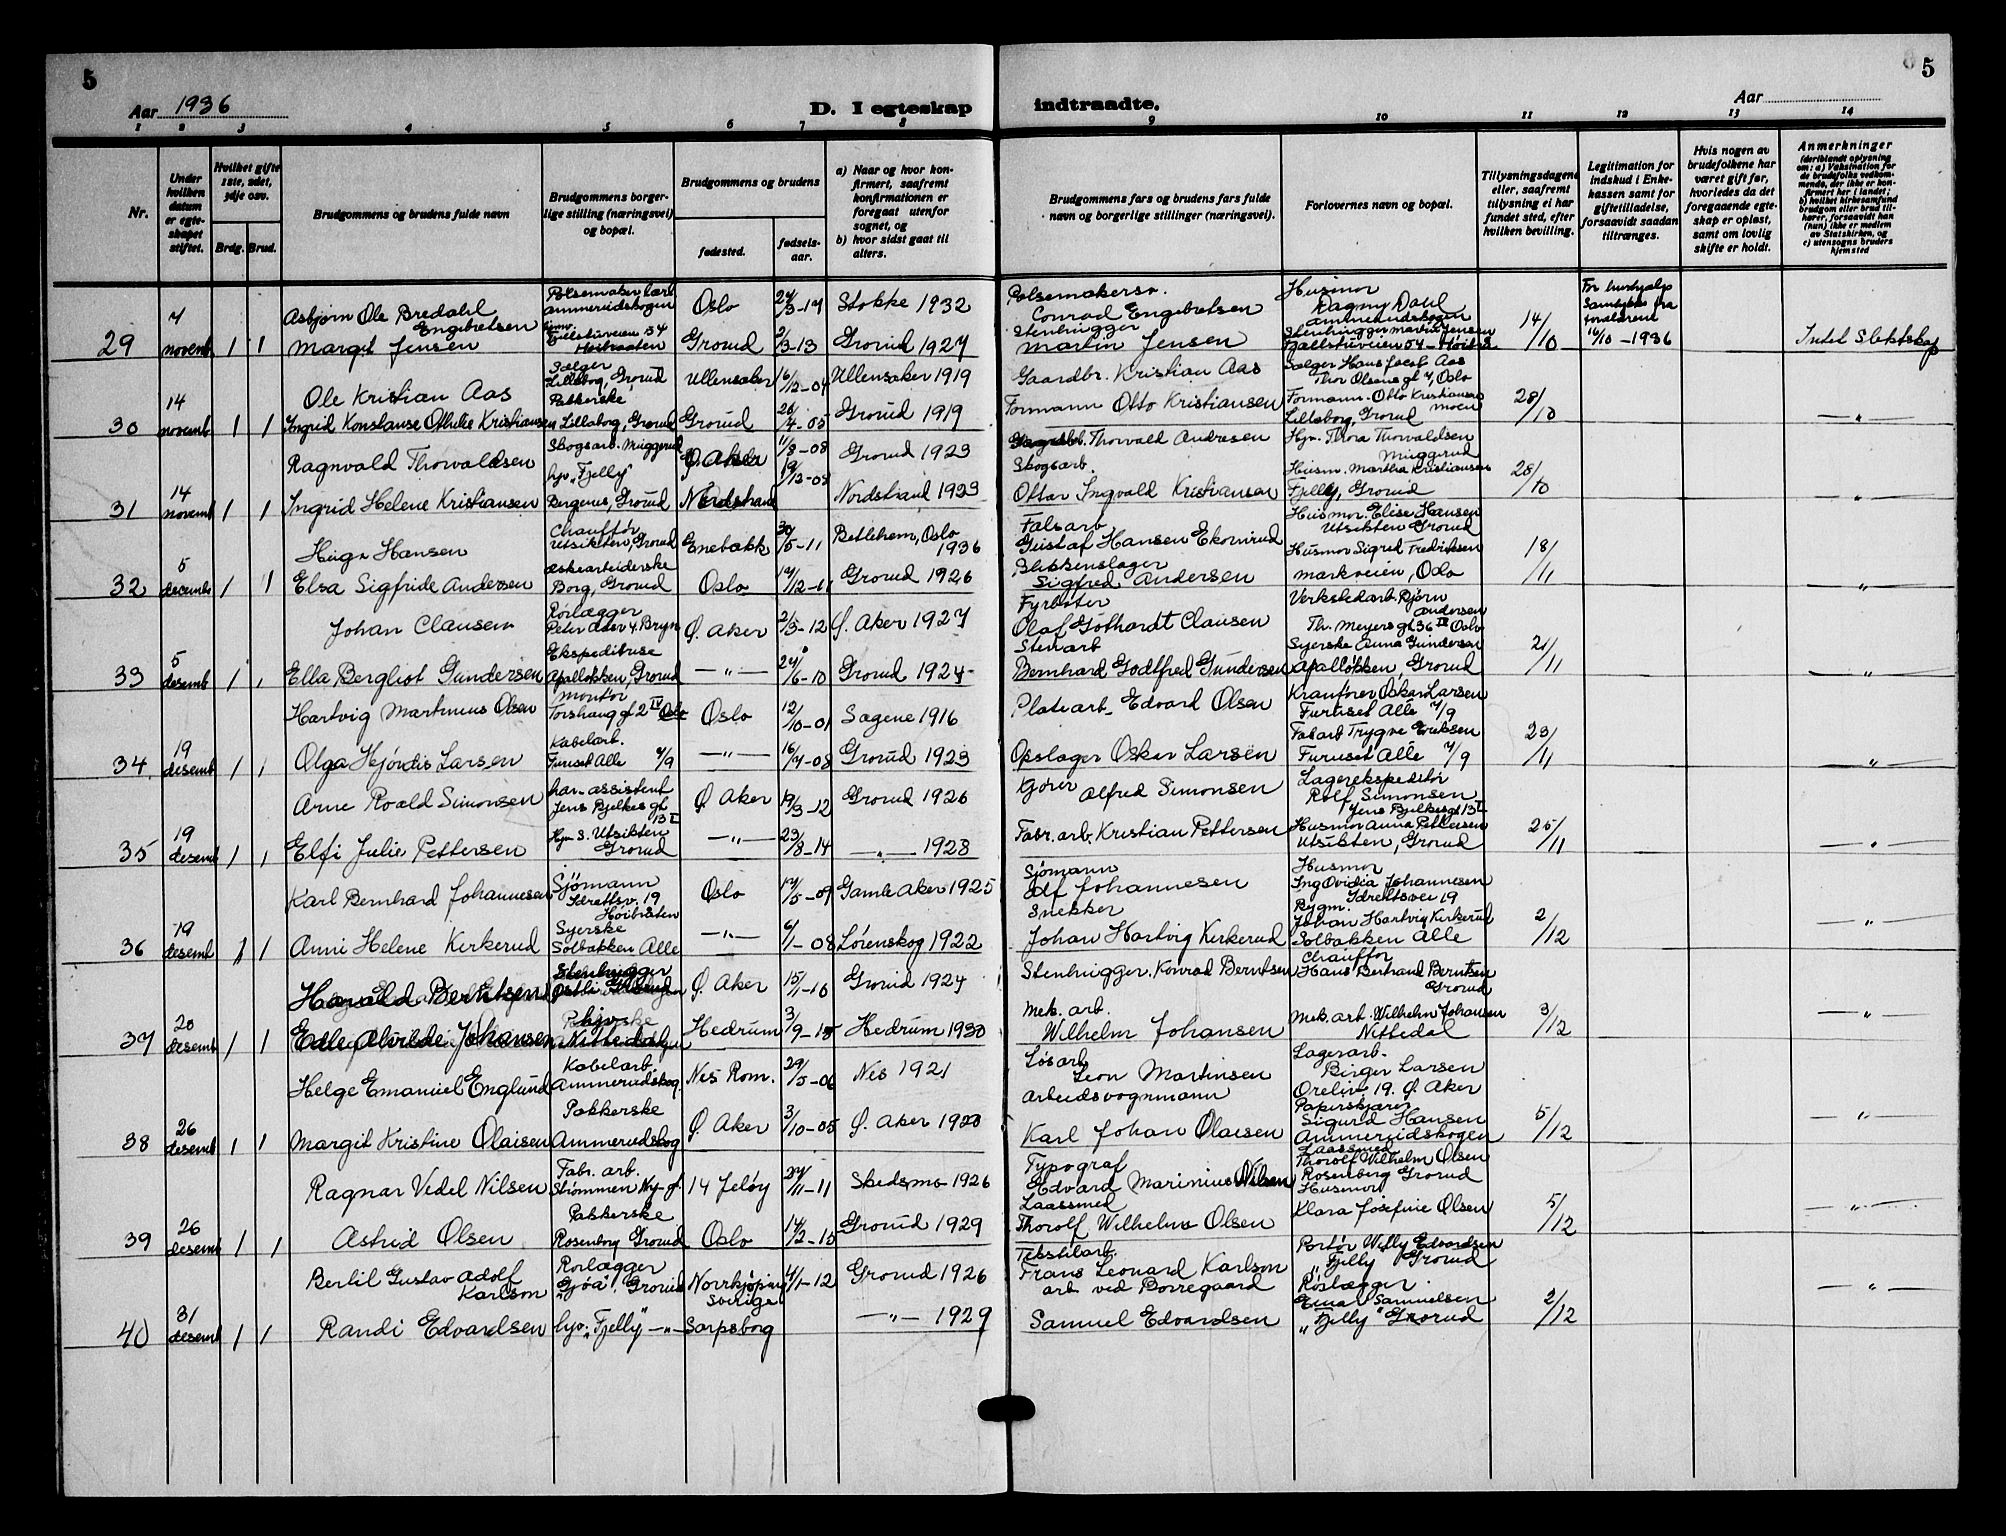 5
Aar 1936
D. I egteskap
indtraadte.
Aar
5
1 2 3 4 5 6 7 8 9 10 11 12 13 14
Nr.
Under hvilken datum er egteskapet stiftet.
Hvilket gifte 1ste, 2det, 3dje osv.
Brdg. Brud.
Brudgommens og brudens fulde navn
Brudgommens borgerlige stilling (næringsvei) og bopæl.
Brudgommens og brudens
fødested.
fødselsaar.
a) Naar og hvor konfirmert, saafremt konfirmationen er foregaat utenfor sognet, og
b) hvor sidst gaat til alters.
Brudgommens fars og brudens fars fulde navn og borgerlige stillinger (næringsvei).
Forlovernes navn og bopæl.
Tillysningsdagene eller, saafremt tillysning ei har fundet sted, efter hvilken bevilling.
Legitimation for indskud i Enkekassen samt for giftetilladelse, forsaavidt saadan tiltrænges.
Hvis nogen av brudefolkene har været gift før, hvorledes da det foregaaende egteskap er opløst, samt om lovlig skifte er holdt.
Anmerkninger
(deriblandt oplysning om: a) Vaksination for de brudefolks vedkommende, der ikke er konfirmert her i landet; b) hvilket kirkesamfund brudgom eller brud tilhører, forsaavidt han (hun) ikke er medlem av Statskirken, og c) utensogns bruders hjemsted
29 7 novemb 1 1
Asbjørn Ole Bredahl Engebretsen
Ammerudskogen
Oslo 24/3-17 Stokke 1932
Conrad Engebretsen
Husmor Dagny Dahl Ammerudskogen
14/10
16/10-1936
Intet Slektskap
Margit Jensen
Fjellstuveien 54
Grorud 2/3-13 Grorud 1927
Stenhugger Martin Jensen
Stenhugger Martin Jensen
Fjellstuveien 54
30 14 novemb 1 1
Ole Kristian Aas
Selger Lilleborg, Grorud
Ullensaker 16/12-04 Ullensaker 1919
Gaardbr. Kristian Aas
Thor Olsens gt 7, Oslo
28/10
Ingrid Konstanse Othilie Kristiansen
Pakkerske Lilleborg, Grorud
Grorud 26/4-05 Grorud 1919
Formann Otto Kristiansen
Formann Otto Kristiansen
Lilleborg, Grorud
31 14 novemb 1 1
Ragnvald Thorvaldsen
Skogsarb. Muggerud
Ø. Aker 11/8-08 Grorud 1923
Thorvald Andresen
Hjv. Thora Thorvaldsen Muggerud
28/10
Ingrid Helene Kristiansen
hjv. "Fjelly" Bergerus, Grorud
Nordstrand 19/12-09 Nordstrand 1923
Skogsarb. Ottar Ingvald Kristiansen
Husm. Martha Kristiansen
Fjelly, Grorud
32 5 decembr 1 1
Hugo Hansen
Chauffør Utsikten, Grorud
Enebakk 30/5-11 Betlehem, Oslo 1936
Gustaf Hansen Ekornrud
Husmor Elise Hansen Utsikten Grorud
18/11
Elsa Sigfride Andersen
Borg, Grorud
Oslo 14/12-11 Grorud 1926
Blikkenslager Sigfred Andersen
Husmor Sigrid Fredriksen
Markveien, Oslo
33 5 desemb 1 1
Johan Clausen
Rørlægger
Ø. Aker 2/3-12 Ø. Aker 1927
Fyrbøter Olaf Gothardt Clausen
Verkstedarb Bjørn Andersen
Th. Meyers gt 36 IV Oslo
21/11
Ella Bergliot Gundersen
Ekspeditrise Apalløkken, Grorud
—"— 24/6-10 Grorud 1924
Stenarb Bernhard Godtfred Gundersen
Syerske Anna Gundersen
Apalløkken, Grorud
34 19 desemb 1 1
Hartvig Martinius Olsen
Montør Torshaug gt 2 IV Oslo
Oslo 12/10-01 Sagene 1916
Platearb. Edvard Olsen
Kranfører Oskar Larsen
Furuset Alle 7/9
23/11
Olga Hjørdis Larsen
Kabelarb. Furuset Alle 7/9
—"— 16/7-08 Grorud 1923
Opslager Oskar Larsen
Fabarb Trygve Eriksen
Furuset Alle 7/9
35 19 desemb 1 1
Arne Roald Simonsen
assistent Jens Bjelkes gt 13 I
Ø Aker 19/3-12 Grorud 1926
Kjører Alfred Simonsen
Lagerekspeditør Rolf Simonsen
Jens Bjelkes gt 13 I
25/11
Elfi Julie Pettersen
Utsikten Grorud
—"— 23/8-14 —"— 1928
Fabr. arb. Kristian Pettersen
Husmor Anna Pettersen
Utsikten, Grorud
36 19 desemb 1 1
Karl Bernhard Johannesen
Sjømann Idrettsv. 19 Høibråten
Oslo 17/5-09 Gamle Aker 1925
Sjømann Johannesen
Husmor Ovidia Johannesen
Idrettsvei 19
2/12
Anni Helene Kirkerud
Syerske Solbakken Alle
—"— 6/1-08 Lørenskog 1922
Snekker Johan Hartvig Kirkerud
Bygm. Johan Hartvig Kirkerud
Solbakken Alle
37 20 desemb 1 1
Harald Berntsen
Stenhugger
Ø. Aker 15/1-16 Grorud 1924
Stenhugger Konrad Berntsen
Chauffør Hans Bertrand Berntsen Grorud
3/12
Edle Alvilde Johansen
hjv. Nittedal
Hedrum 3/9-15 Hedrum 1930
Mek. arb. Wilhelm Johansen
Mek. arb. Wilhelm Johansen
Nittedal
38 26 desemb 1 1
Helge Emanuel Englund
Kabelarb. Ammerudskog.
Nes Rom. 29/5-06 Nes 1921
Løsarb Leon Martinsen
Lagerarb. Birger Larsen
19. Ø. Aker
5/12
Margit Kristine Olaisen
Pakkerske Ammerudskog
Ø Aker 3/10-05 Ø. Aker 1920
Arbeidsvognmann Karl Johan Olaisen
Papirskjærer Sigurd Hansen
Ammerudskogen
39 26 desemb 1 1
Ragnar Vedel Nilsen
Fabr. arb. Strømmen Ny-gt. 14
Jeløy 27/11-11 Skedsmo 1926
Typograf Edvard Marinius Nilsen
Laassmed Thorolf Wilhelm Olsen
Rosenborg Grorud
5/12
Astrid Olsen
Pakkerske Rosenborg Grorud
Oslo 14/2-15 Grorud 1929
Laassmed Thorolf Wilhelm Olsen
Husmor Klara Josefine Olsen
40 31 desemb 1 1
Bertil Gustav Adolf Karlson
Rørlægger "Gjøa", Grorud
Norrkjøping Sverige 4/1-12 Grorud 1926
Tekstilarb. Frans Leonard Karlson
Portør Willy Edvardsen
"Fjelly" Grorud
2/12
Randi Edvardsen
hjv. "Fjelly" —"—
Sarpsborg —"— 1929
arb. ved Borregaard Samuel Edvardsen
Rørlægger Einar Samuelsen
"Fjelly" Grorud